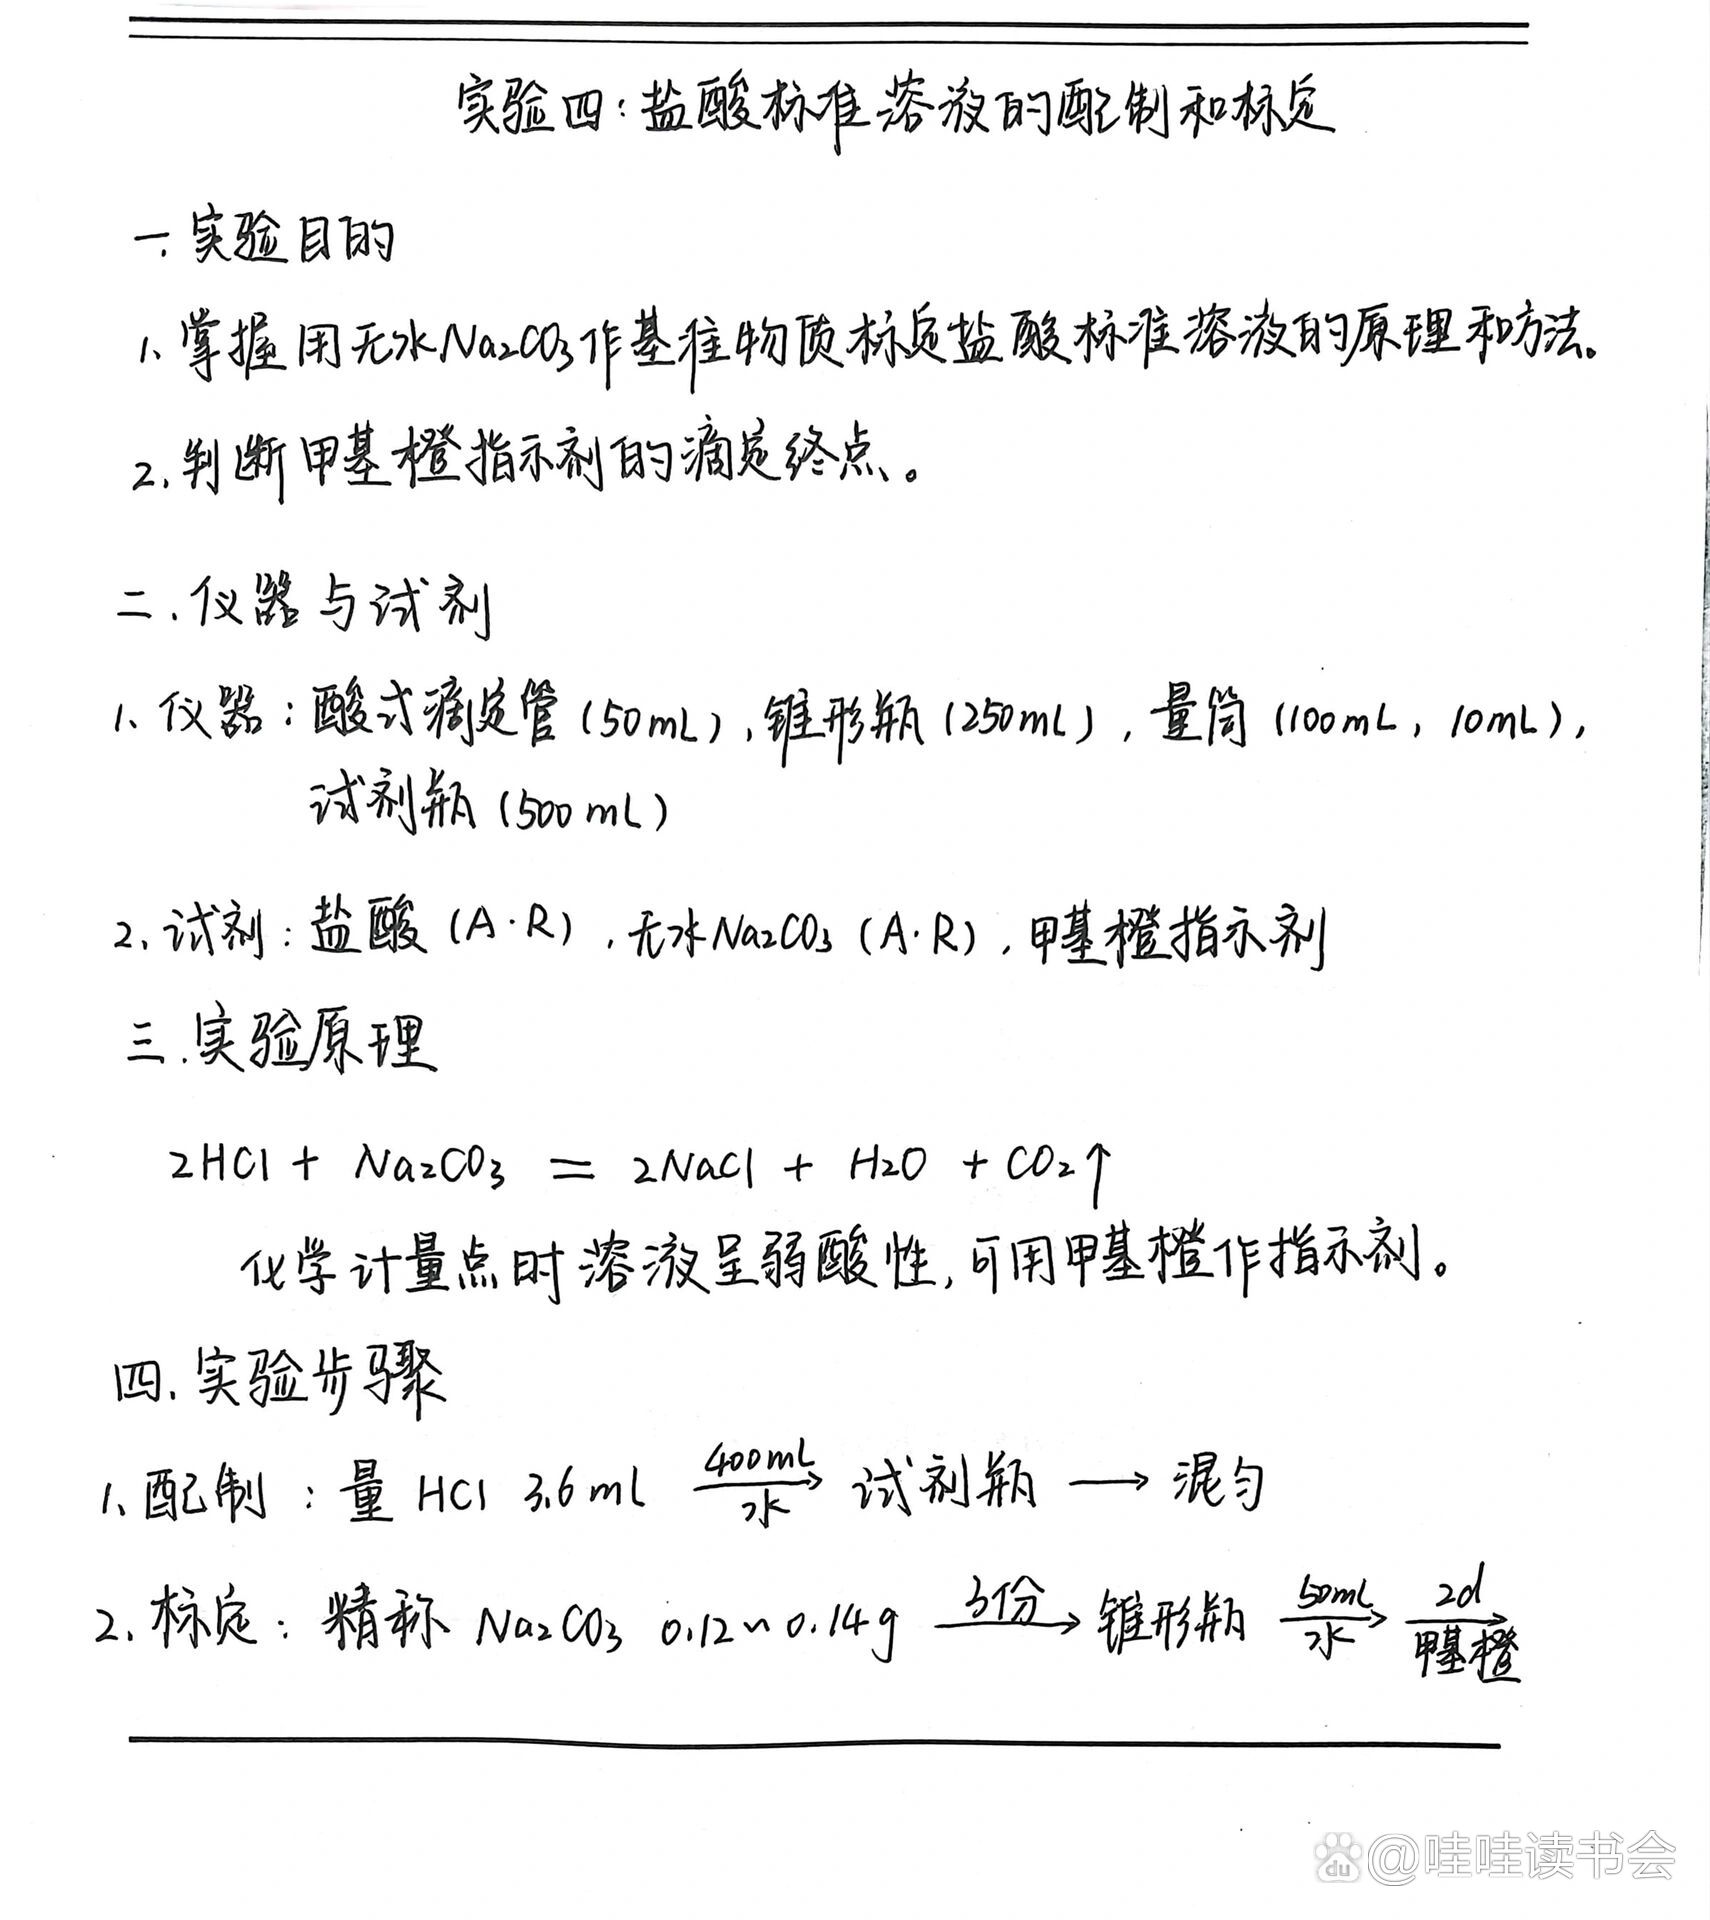 实验四:盐酸标准溶液的配制和标定
一.实验目的
1、掌握用无水Na₂CO₃作基准物质标定盐酸标准溶液的原理和方法。
2.判断甲基橙指示剂的滴定终点。
二.仪器与试剂
1、仪器:酸式滴定管(50mL),锥形瓶(250mL),量筒(100mL,10mL),
试剂瓶(500mL)
2、试剂:盐酸(A·R),无水Na₂CO₃(A·R),甲基橙指示剂
三.实验原理
2HCl + Na₂CO₃ = 2NaCl + H₂O + CO₂↑
化学计量点时溶液呈弱酸性,可用甲基橙作指示剂。
四.实验步骤
1、配制:量 HCl 3.6ml 400mL 水→ 试剂瓶 → 混匀
2.标定:精称 Na₂CO₃ 0.12~0.14g 3份→ 锥形瓶 50mL 水→ 2d 甲基橙→
du @哇哇读书会